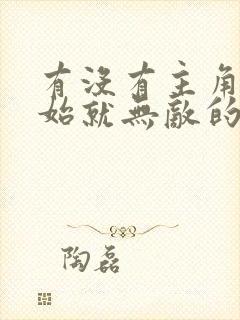 有沒有主角
始就無敵的
陶磊